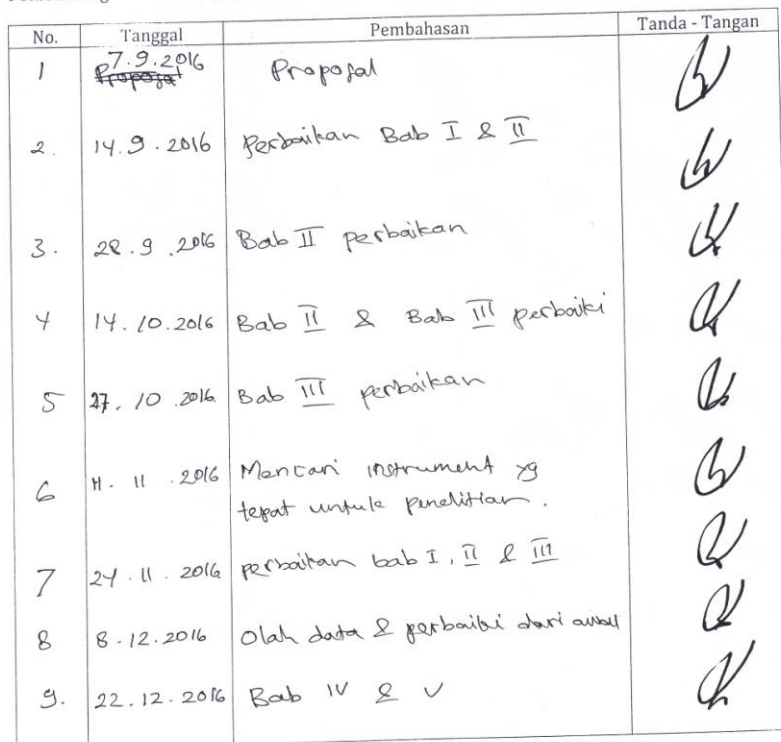 No. Tanggal Pembahasan Tanda - Tangan
1 7.9.2016 Proposal
2. 14.9.2016 Perbaikan Bab I & II
3. 28.9.2016 Bab II perbaikan
4 14.10.2016 Bab II & Bab III perbaiki
5 27.10.2016 Bab III perbaikan
6 11.11.2016 Mencari instrument yg
tepat untuk penelitian.
7 24.11.2016 perbaikan bab I, II & III
8 8-12.2016 Olah data & perbaiki dari awal
9. 22.12.2016 Bab IV & V